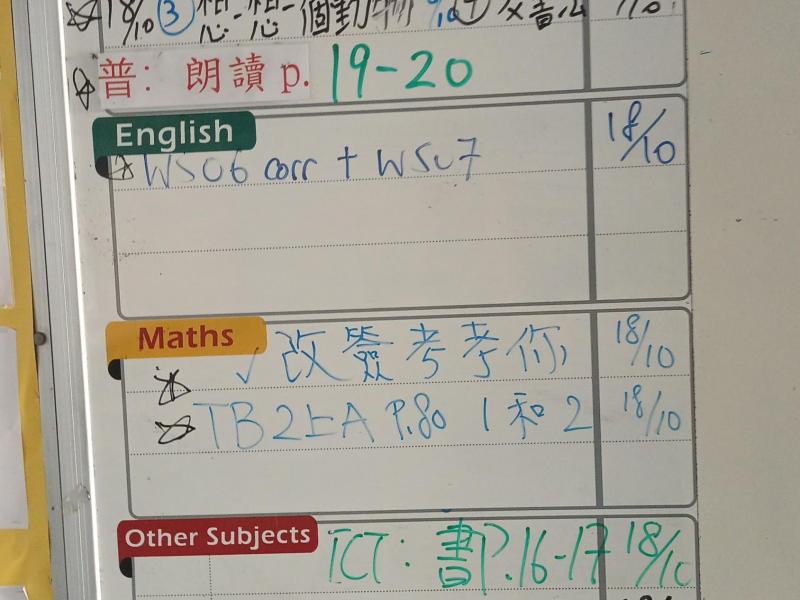 18/10 ③ 想一想一個動物
普: 朗讀 p. 19-20
English
WS06 corr + WS07 18/10
Maths
✓改簽考考你 18/10
TB2上A P.80 1和2 18/10
Other Subjects
ICT: 書P.16-17 18/10